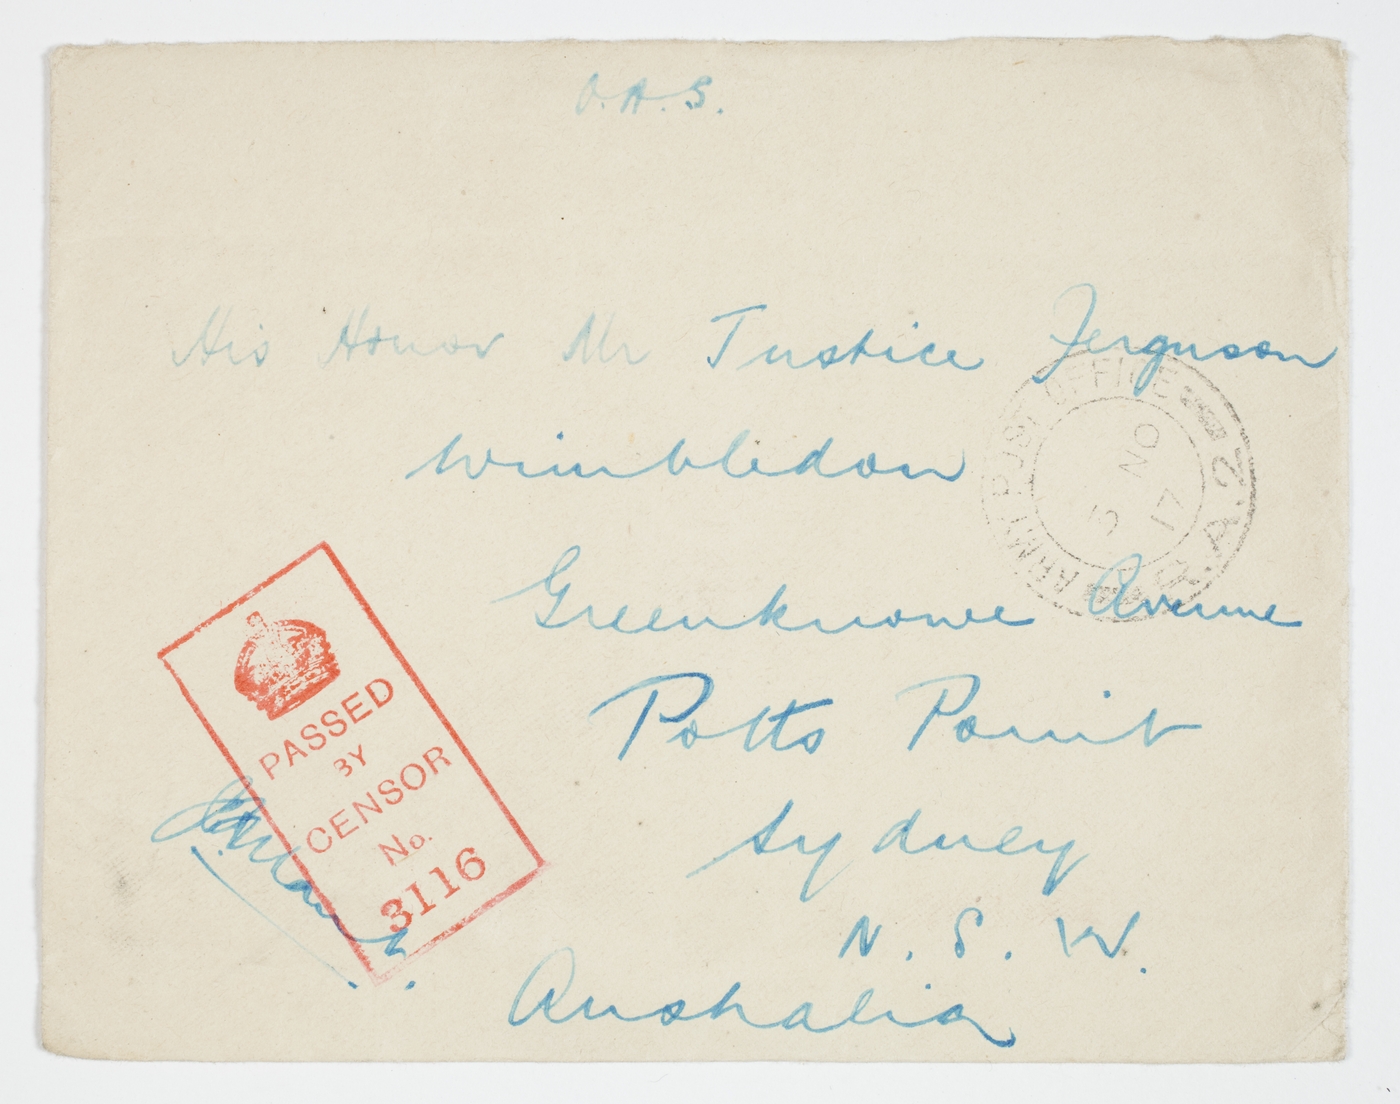 O.A.S.
His Honor Mr Justice Ferguson
Wimbledon
Greenknowe Avenue
Potts Point
Sydney
N.S.W.
Australia
ARMY POST OFFICE
5 NO
17
A.2
PASSED
BY
CENSOR
No.
3116